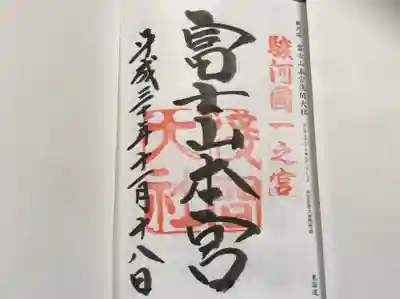 富士山本宮浅間大社
駿河國一之宮
富士山本宮
淺間大社
平成三十年十一月十八日
東海道